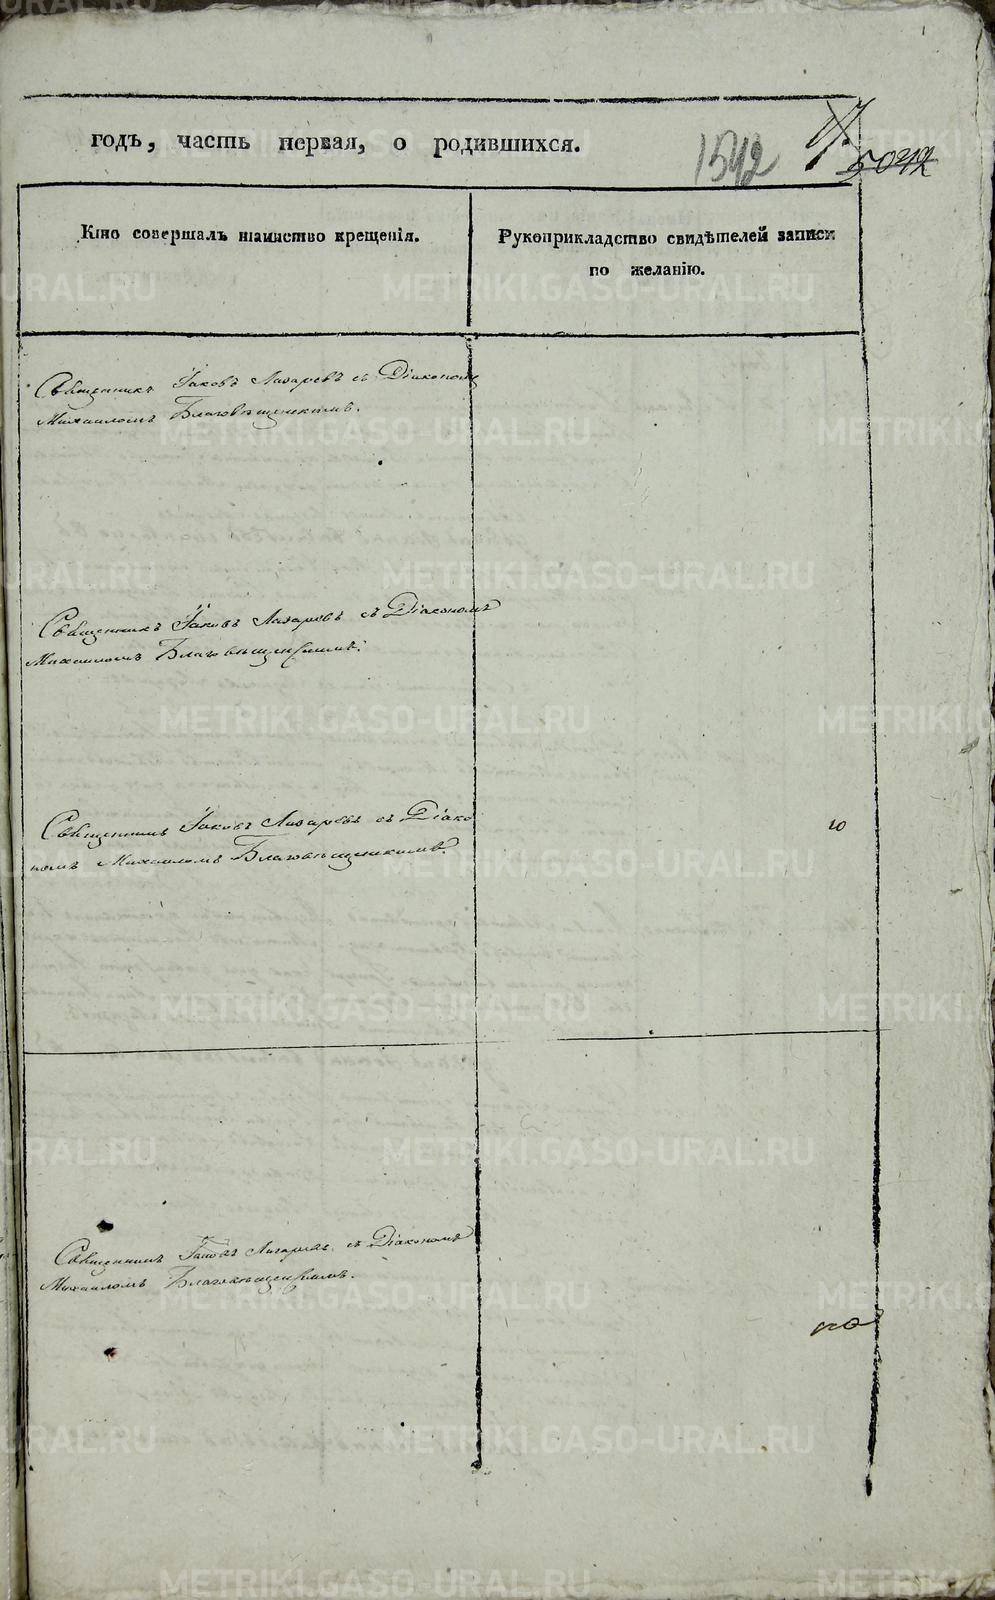 годъ, часть первая, о родившихся.
1542
5042
Кто совершалъ таинство крещенія.
Рукоприкладство свидѣтелей записи
по желанію.
Священникъ Іаковъ Лазаревъ съ Діакономъ
Михаиломъ Благовѣщенскимъ.
Священникъ Іаковъ Лазаревъ съ Діакономъ
Михаиломъ Благовѣщенскимъ.
Священникъ Іаковъ Лазаревъ съ Діако
номъ Михаиломъ Благовѣщенскимъ.
10
Священникъ Іаковъ Лазаревъ съ Діакономъ
Михаиломъ Благовѣщенскимъ.
METRIKI.GASO-URAL.RU